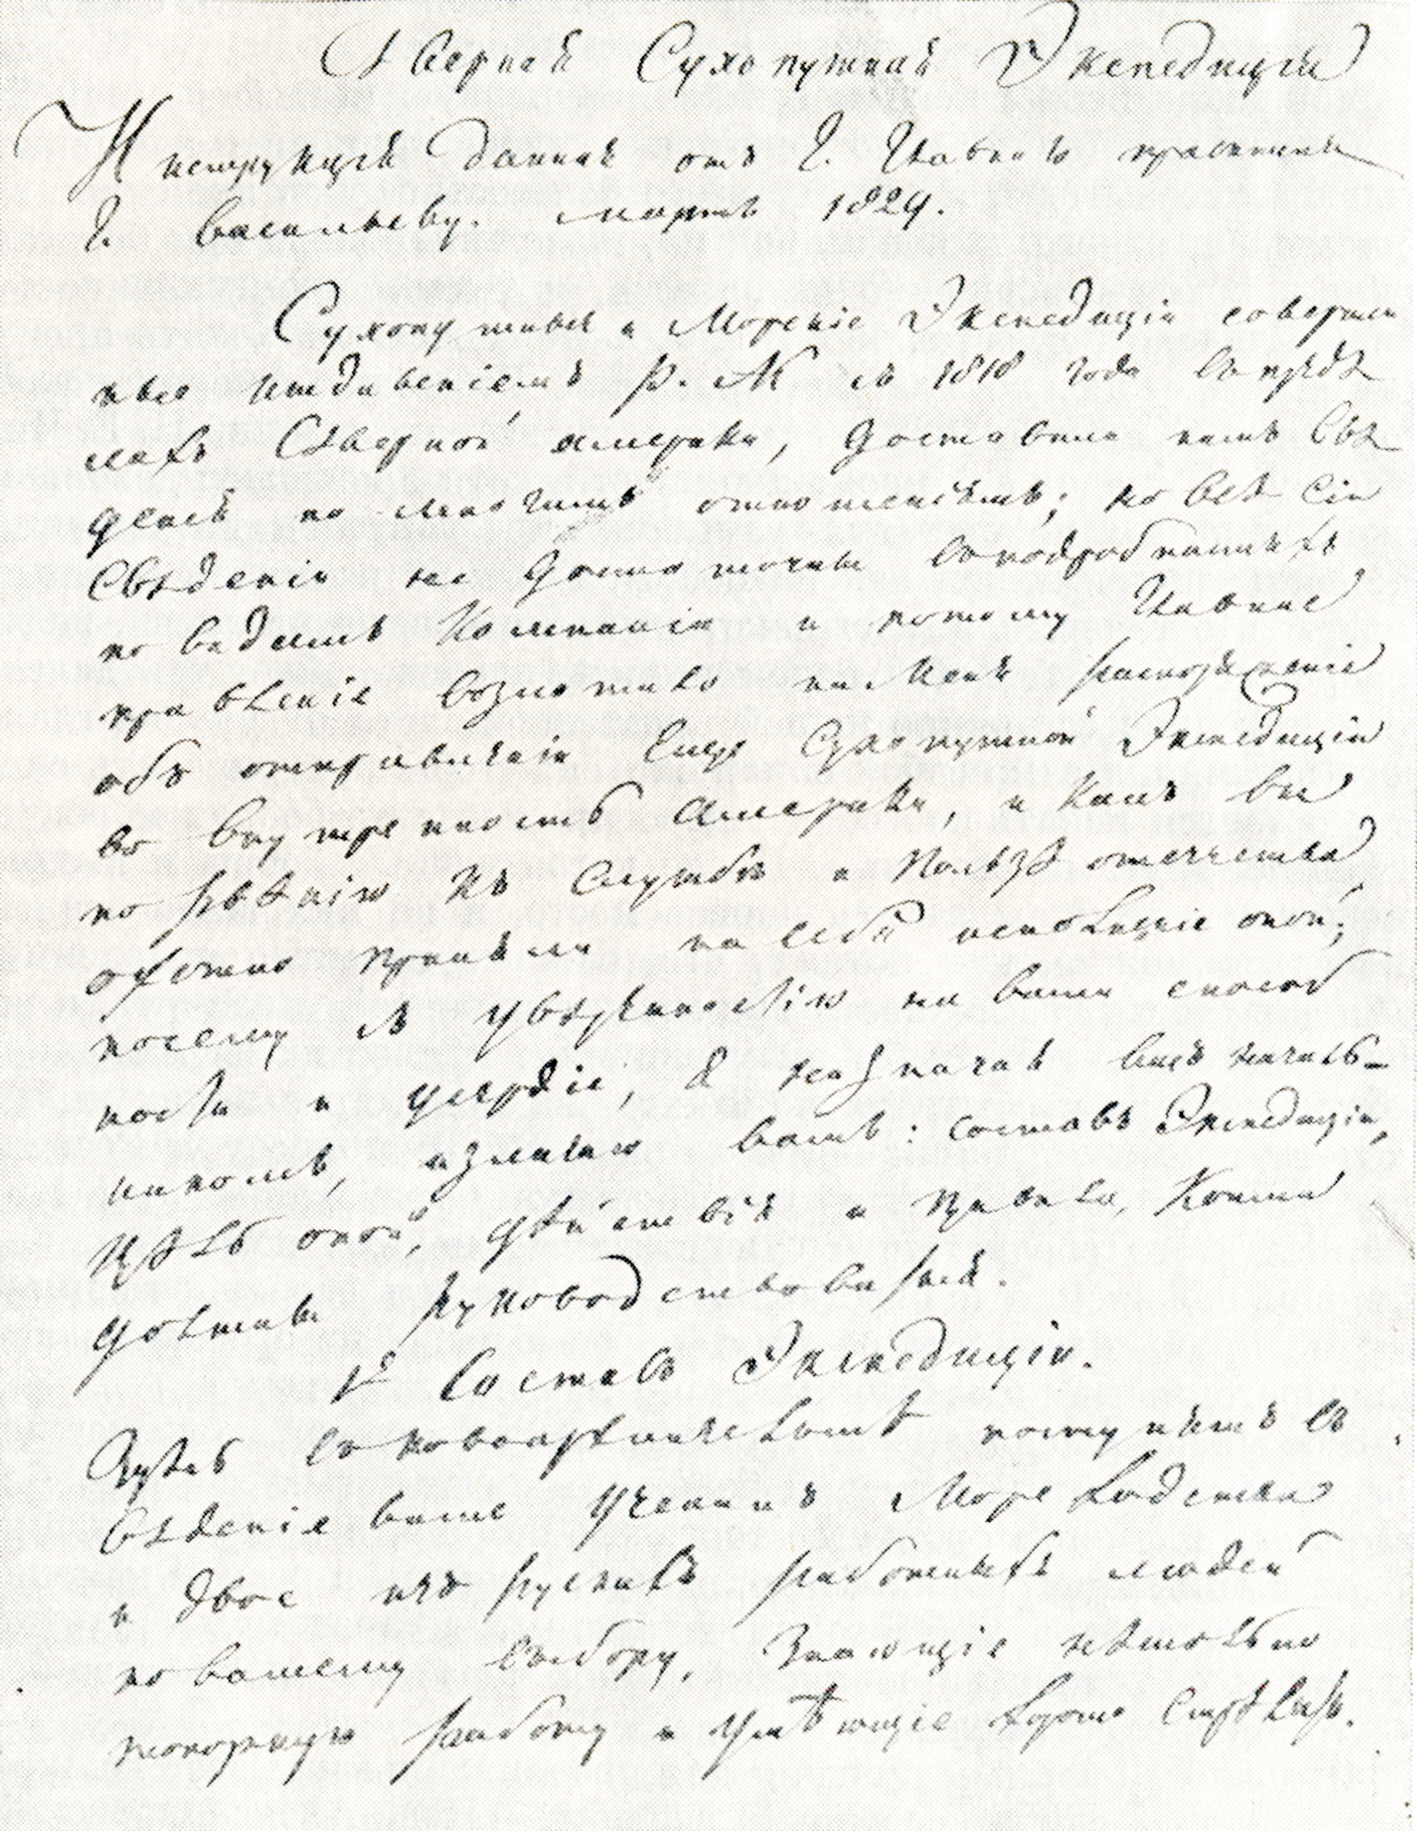 Сѣверной Сухопутной Экспедиціи
Инструкція данная отъ Г. Главнаго правителя
Г. Васильеву. Мартъ 1829.
Сухопутныя и Морскіе Экспедиціи соверше
нные иждивеніемъ Р. А. К. съ 1818 года въ предѣ
лахъ Сѣверной америки, доставили намъ Свѣ
денія по многимъ отношеніямъ; но всѣ сіи
Свѣденія не достаточны въ подробностяхъ
по видамъ Компаніи и потому Главное
правленіе возложило на меня распоряженіе
объ отправленіи Еще Сухопутной Экспедиціи
во внутренность Америки, и какъ вы
по рвѣнію къ Службѣ и Пользѣ отечества
охотно приняли на себя исполненіе оной;
посему съ увѣренностію на ваши способ
ности и усердіе, Я назначая васъ началь-
никомъ, излагаю вамъ: составъ Экспедиціи,
Цѣль оной, дѣйствія и правила, Коими
должны руководствоваться.
1е Составъ Экспедиціи.
Здѣсь въ Новоархангельскѣ поступятъ въ
вѣденіе ваше Ученикъ Мореходства
и двое изъ рускихъ работныхъ людей
по вашему выбору, Знающіе нѣсколько
топорную работу и умѣющіе хорошо Стрѣлять.